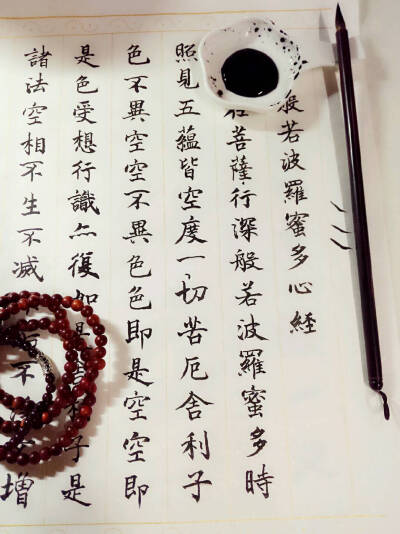 般若波羅蜜多心經
在菩薩行深般若波羅蜜多時
照見五蘊皆空度一切苦厄舍利子
色不異空空不異色色即是空空即
是色受想行識亦復如是舍利子是
諸法空相不生不滅不垢不增